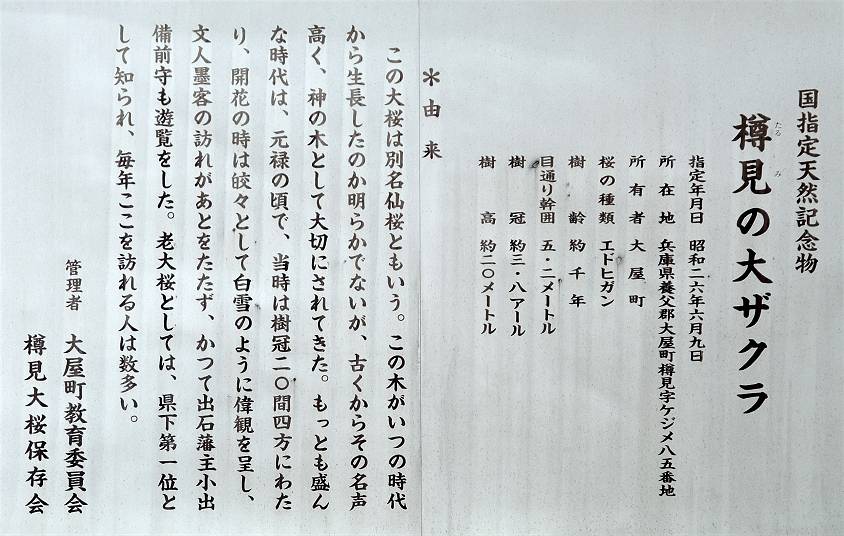 国指定天然記念物
樽見の大ザクラ
たる み
指定年月日 昭和二六年六月九日
所在地 兵庫県養父郡大屋町樽見字ケジメ八五番地
所有者 大屋町
桜の種類 エドヒガン
樹齢 約千年
目通り幹囲 五・二メートル
樹冠 約三・八アール
樹高 約二〇メートル
＊由来
この大桜は別名仙桜ともいう。この木がいつの時代
から生長したのか明らかでないが、古くからその名声
高く、神の木として大切にされてきた。もっとも盛ん
な時代は、元禄の頃で、当時は樹冠二〇間四方にわた
り、開花の時は皎々として白雪のように偉観を呈し、
文人墨客の訪れがあとをたたず、かつて出石藩主小出
備前守も遊覧をした。老大桜としては、県下第一位と
して知られ、毎年ここを訪れる人は数多い。
管理者 大屋町教育委員会
樽見大桜保存会